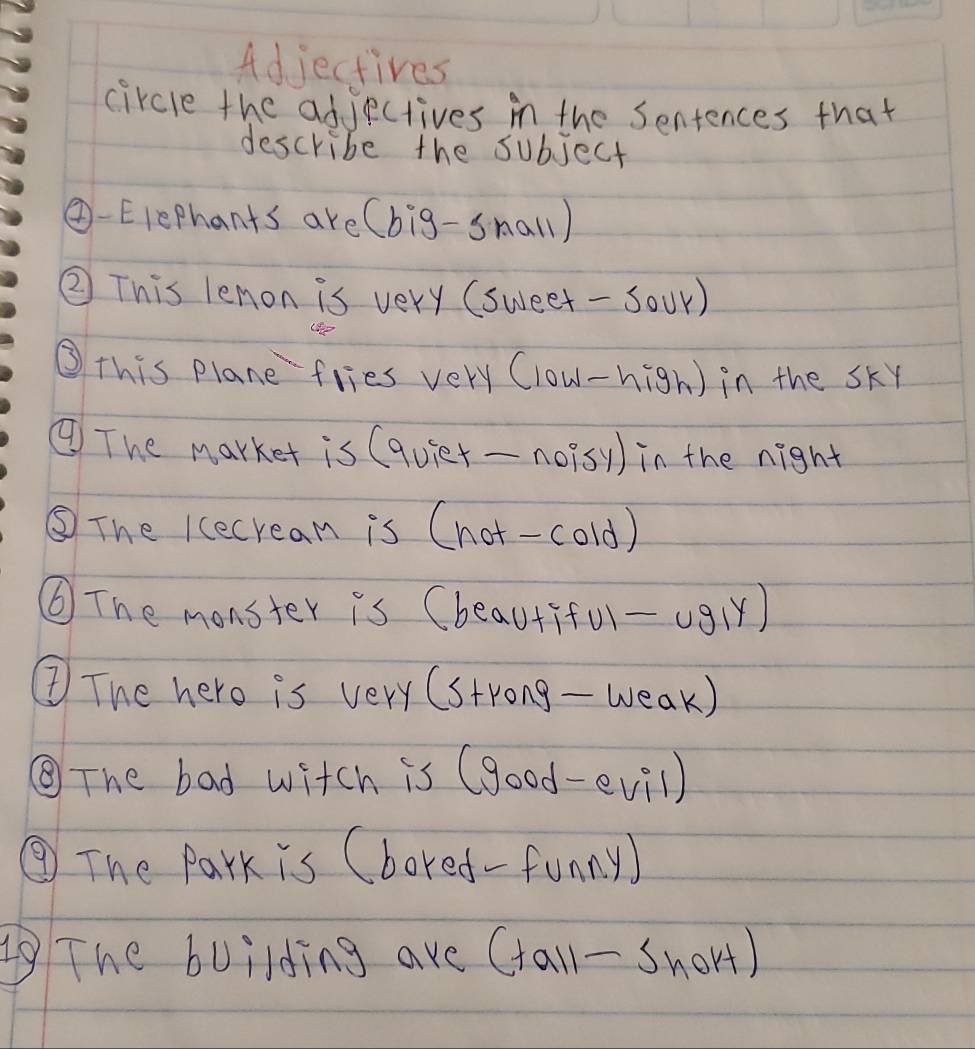 Adjectives
circle the adjectives in the sentences that
describe the subject
①-Elephants are (big-small)
② This lemon is very (sweet-sour)
③ this plane flies very (low-high) in the sky
④ The market is (quiet-noisy) in the night
⑤ The Icecream is (hot-cold)
⑥ The monster is (beautiful-ugly)
⑦ The hero is very (strong-weak)
⑧ The bad witch is (good-evil)
⑨ The park is (bored-funny)
⑩ The building are (tall-short)